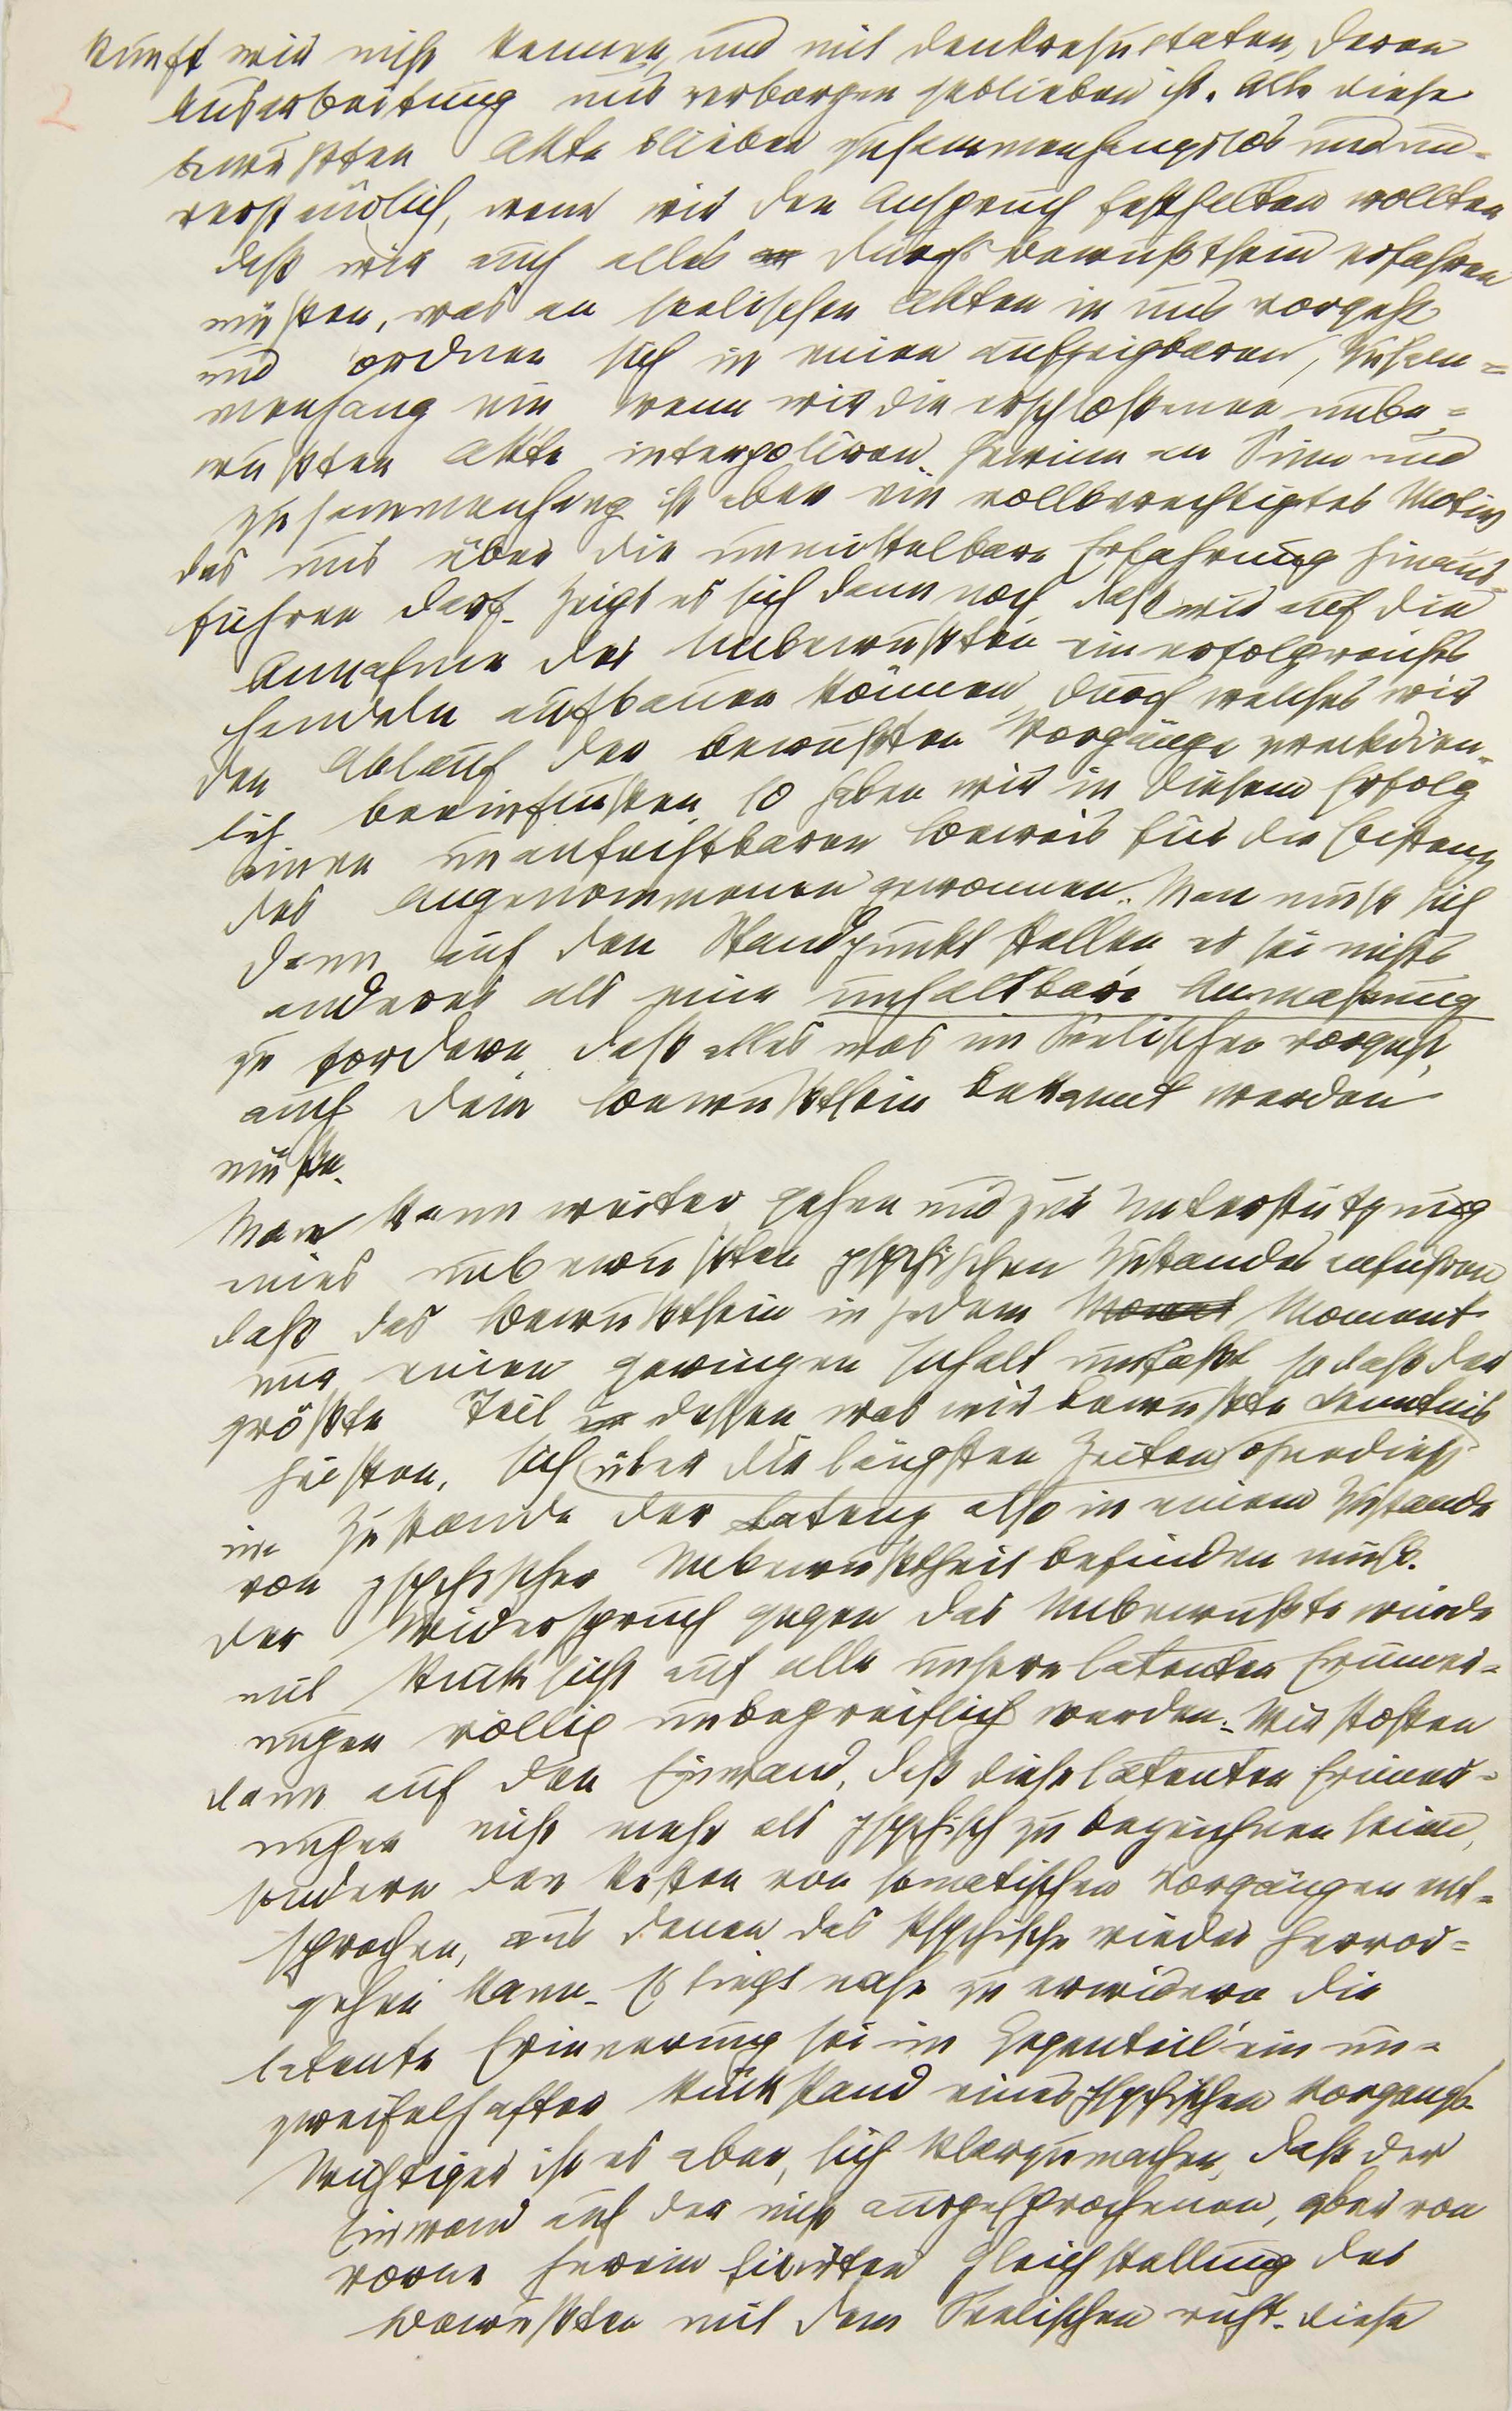 kunft wir nicht kennen, und mit Denkresultaten, deren
2
Ausarbeitung uns verborgen geblieben ist. Alle diese
bewußten Akte blieben zusammenhangslos und un-
verständlich, wenn wir den Anspruch festhalten wollten
daß wir auch alles durchs Bewußtsein erfahren
müßten, was an seelischen Akten in uns vorgeht
und ordnen sich in einen aufzeigbaren, Zusam-
menhang ein wenn wir die erschloßenen unbe-
wußten Akte interpoliren. Gewinn an Sinn und
Zusammenhang ist aber ein vollberechtigtes Motiv
das uns über die unmittelbare Erfahrung hinaus-
führen darf. Zeigt es sich dann noch, daß wir auf die
Annahme des Unbewußten ein erfolgreiches
Handeln aufbauen können durch welches wir
den Ablauf der bewußten Vorgänge zweckdien-
lich beeinflußen, so haben wir in diesem Erfolg
einen unanfechtbaren Beweis für die Existenz
des Angenommenen gewonnen. Man muß sich
dann auf den Standpunkt stellen es sei nichts
anderes als eine unhaltbare Anmaßung
zu fordern, daß alles was im Seelischen vorgeht,
auch dem Bewußtsein bekannt werden
müße.
Man kann weiter gehen und zur Unterstützung
eines unbewußten psychischen Zustandes anführen
daß das Bewußtsein in jedem Moment
nur einen geringen Inhalt umfaßt so daß der
größte Teil dessen was wir bewußte Kenntnis
heißen, sich über die längsten Zeiten ohnedies
im Zustande der Latenz also in einem Zustande
von psychischer Unbewußtheit befinden muß.
Der Widerspruch gegen das Unbewußte würde
mit Rücksicht auf alle unsere latenten Erinner-
ungen völlig unbegreiflich werden. Wir stoßen
dann auf den Einwand, daß diese latenten Erinner-
ungen nicht mehr als psychisch zu bezeichnen seien,
sondern den Resten von somatischen Vorgängen ent-
sprechen, aus denen das Psychische wieder hervor-
gehen kann. Es liegt nahe zu erwidern die
latente Erinnerung sei im Gegenteil ein un-
zweifelhafter Rückstand eines psychischen Vorgangs.
Wichtiger ist es aber, sich klarzumachen, daß der
Einwand auf der nicht ausgesprochenen, aber von
vorne herein fixirten Gleichstellung des
Bewußten mit dem Seelischen ruht. Diese